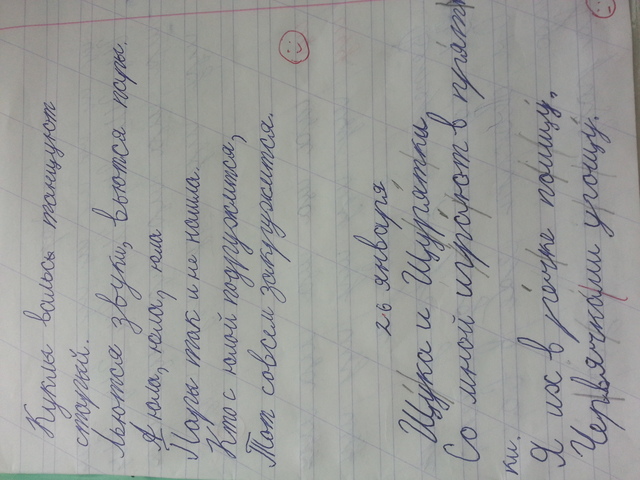 Куклы вальсь танцуют
старый.
Льются звуки, вьются пары.
Я юла, юла, юла
Пара так и не нашла.
Кто с юлой подружится,
Тот совсем закружится.
26 января
Щука и Щурятки,
Со мной играют в прят
ки.
Я их в речке поищу,
Червячками угощу.